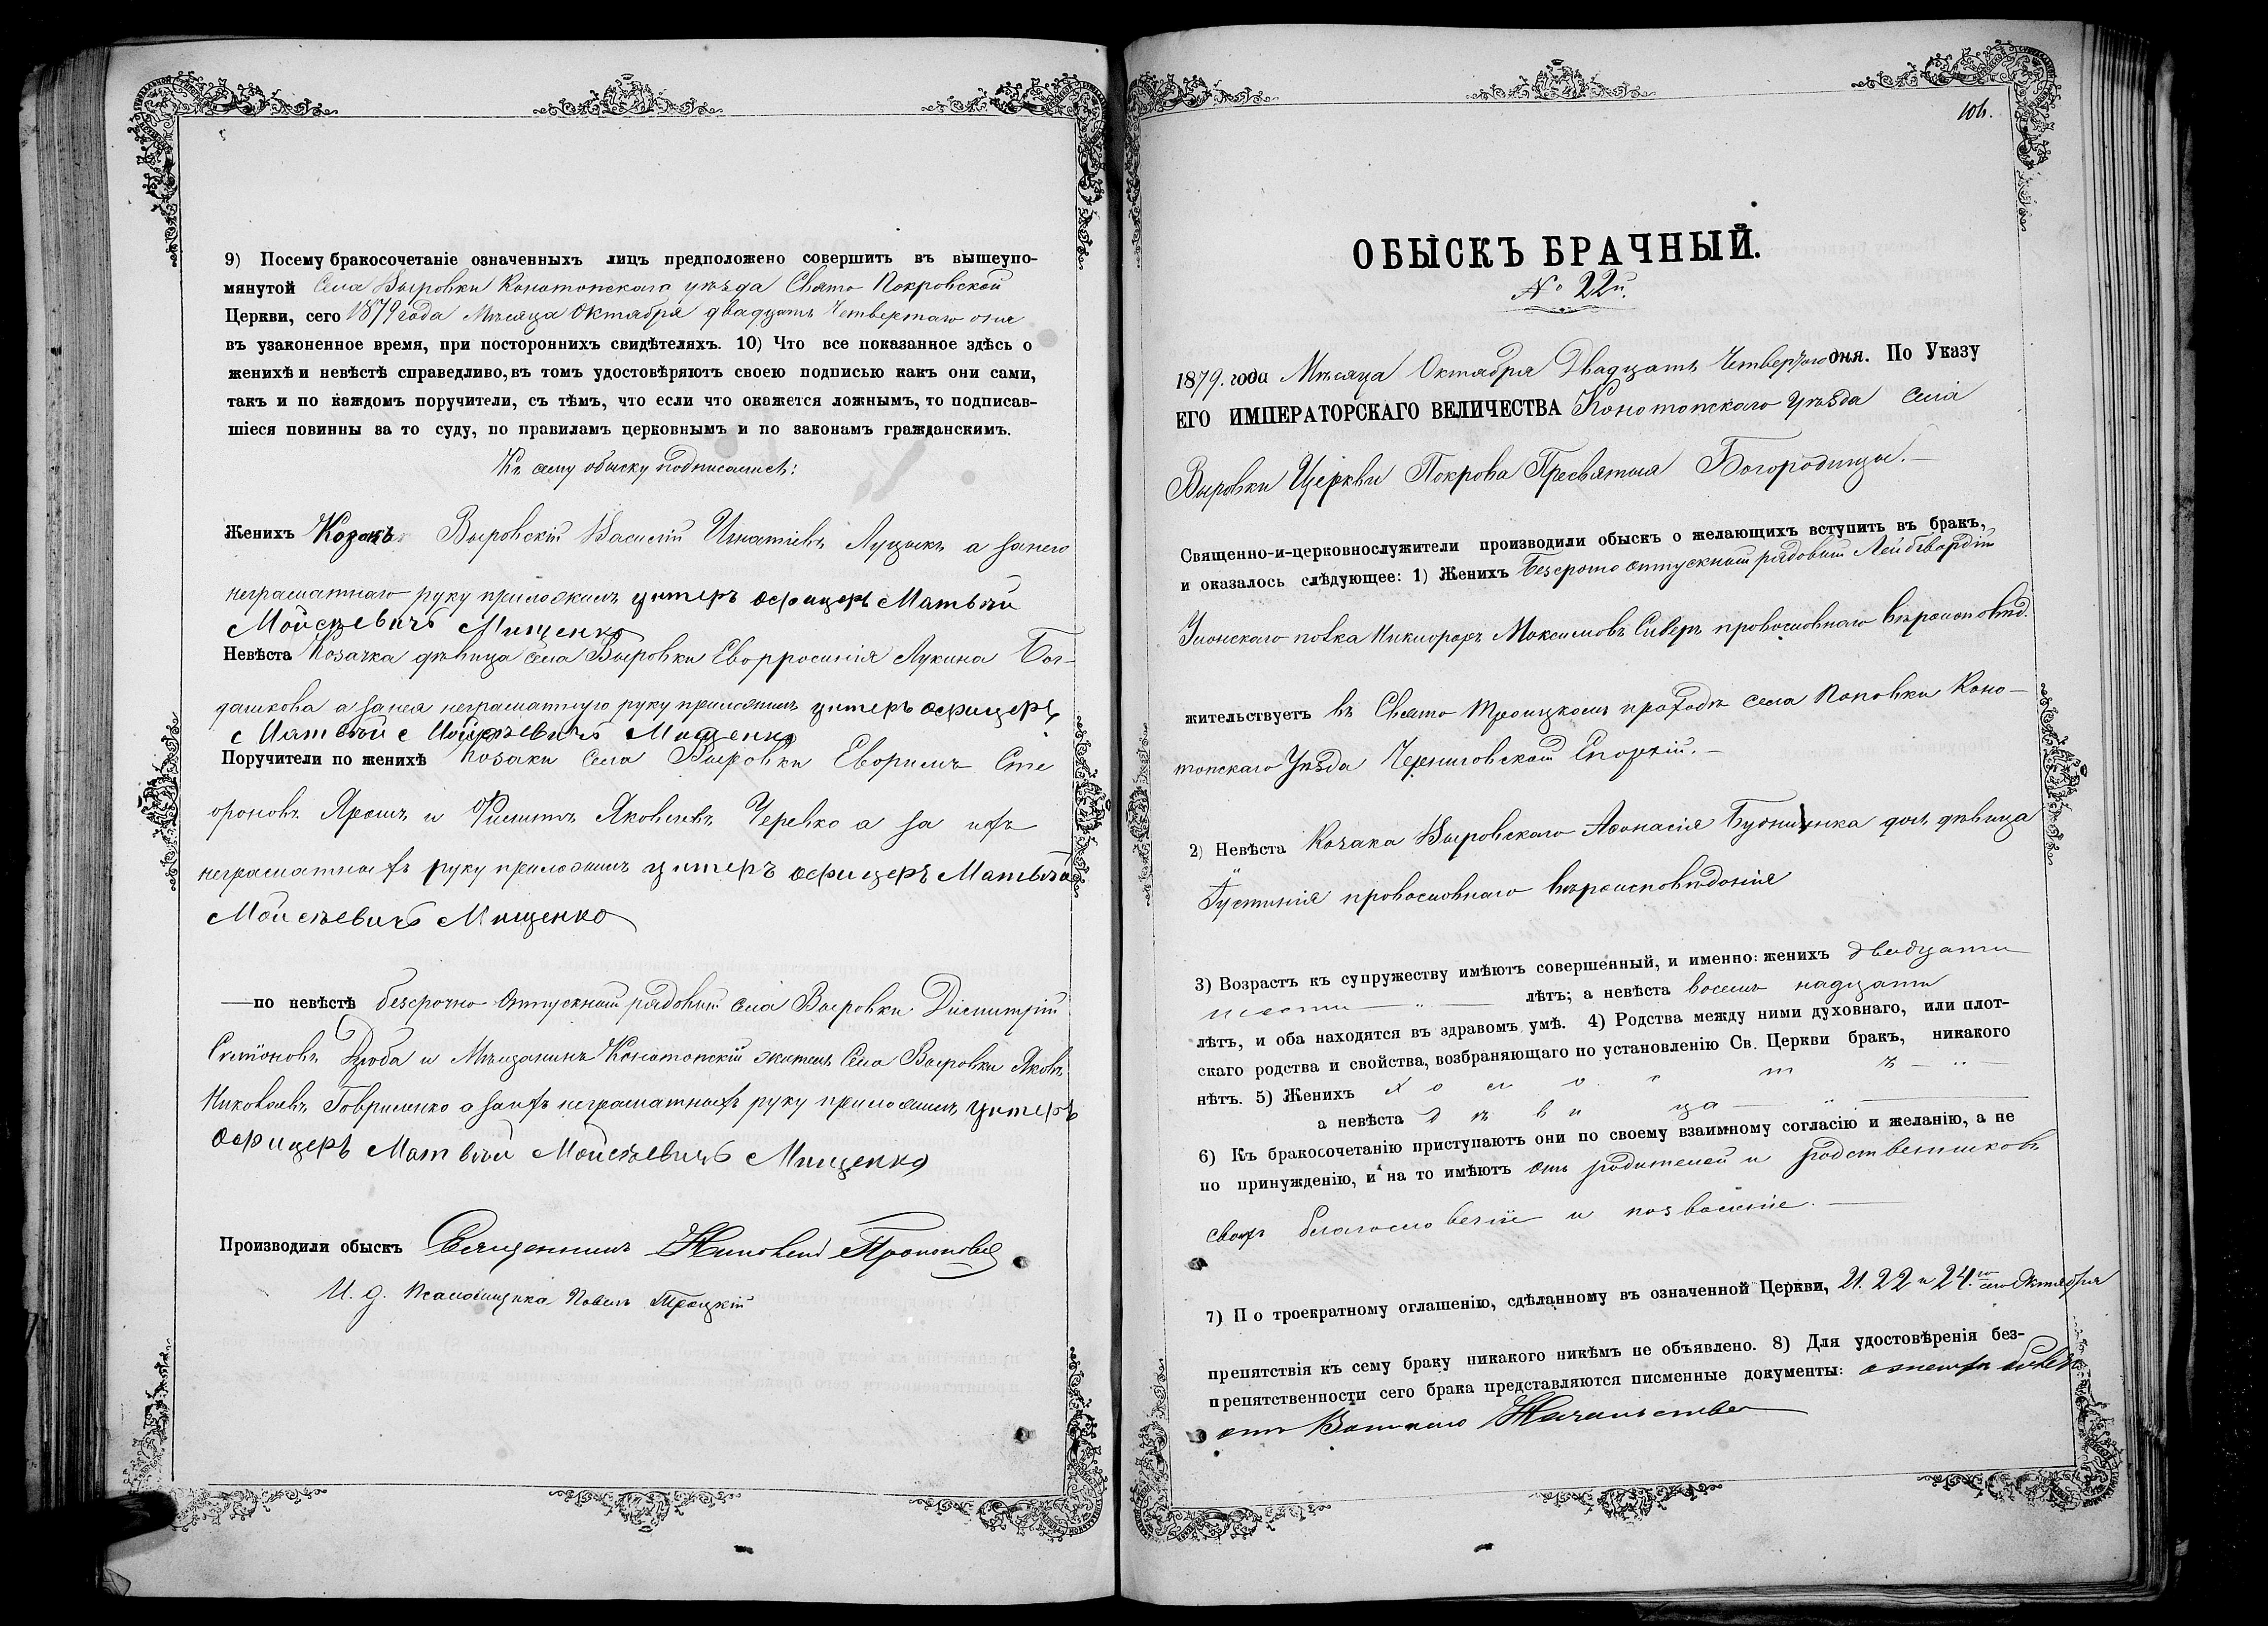 9) Посему бракосочетаніе означенныхъ лицъ предположено совершить въ вышеупо-
мянутой Села Выровки Конотопскаго уѣзда Свято Покровской
Церкви, сего 1879 года Мѣсяца Октября двадцать Четвертаго дня
въ узаконенное время, при постороннихъ свидѣтеляхъ. 10) Что все показанное здѣсь о
женихѣ и невѣстѣ справедливо, въ томъ удостовѣряютъ своею подписью какъ они сами,
такъ и по каждомъ поручители, съ тѣмъ, что если что окажется ложнымъ, то подписав-
шіеся повинны за то суду, по правиламъ церковнымъ и по законамъ гражданскимъ.
Къ сему обыску подписались:
Женихъ Козакъ Выровскій Василій Игнатіевъ Луцыкъ а занего
неграматнаго руку приложилъ унтеръ офицеръ Матвѣй
Мойсѣевичъ Мищенко
Невѣста Козачка дѣвица села Выровки Евфросинія Лукина Бог-
дашкова а занея неграматную руку приложилъ унтеръ офицеръ
Матвѣй Мойсѣевичъ Мищенко
Поручители по женихѣ Козаки Села Выровки Ефримъ Сте
фоновъ Ярошъ и Филипъ Яковлевъ Черевко а за ихъ
неграматныхъ руку приложилъ унтеръ офицеръ Матвѣй
Мойсѣевичъ Мищенко
—по невѣстѣ безсрочно Отпускный рядовый села Выровки Димитрій
Семіоновъ Дзюба и Мѣщанинъ Конотопскій житель Села Выровки Яковъ
Николаевъ Говриленко а заихъ неграматныхъ руку приложилъ унтеръ
офицеръ Матвѣй Мойсѣевичъ Мищенко
Производили обыскъ Священникъ
И. д. Псаломщика Павелъ Троцкій
106.
ОБЫСКЪ БРАЧНЫЙ.
№ 22й.
1879. года Мѣсяца Октября Двадцать Четвертаго дня. По Указу
ЕГО ИМПЕРАТОРСКАГО ВЕЛИЧЕСТВА Конотопскаго уѣзда села
Выровки Церкви Покрова Пресвятыя Богородицы.—
Священно-и-церковнослужители производили обыскъ о желающихъ вступить въ бракъ,
и оказалось слѣдующее: 1) Женихъ Безсрочно отпускный рядовый Лейбгвардіи
Уланскаго полка Никифоръ Максимовъ Сиверъ провославнаго вѣроисповѣд.
жительствуетъ въ Свято Троицкомъ приходѣ села Поповки Коно-
топскаго Уѣзда Черниговской Епархіи.—
2) Невѣста Козака Выровскаго Афонасія дочь дѣвица
Іустинія провославнаго вѣроисповѣдонія
3) Возрастъ къ супружеству имѣютъ совершенный, и именно: женихъ двадцати
шести — " — лѣтъ; а невѣста восемь надцати
лѣтъ, и оба находятся въ здравомъ умѣ. 4) Родства между ними духовнаго, или плот-
скаго родства и свойства, возбраняющаго по установленію Св. Церкви бракъ, никакого
нѣтъ. 5) Женихъ х о л о с т ъ — " —
а невѣста д ѣ в и ца — " —
6) Къ бракосочетанію приступаютъ они по своему взаимному согласію и желанію, а не
по принужденію, и на то имѣютъ отъ родителей и родственниковъ
своихъ благословеніе и позволеніе.—
7) По троекратному оглашенію, сдѣланному въ означенной Церкви, 21. 22 и 24.го сего Октября
препятствія къ сему браку никакого никѣмъ не объявлено. 8) Для удостовѣренія без-
препятственности сего брака представляются писменные документы: билетъ
отъ Начальства